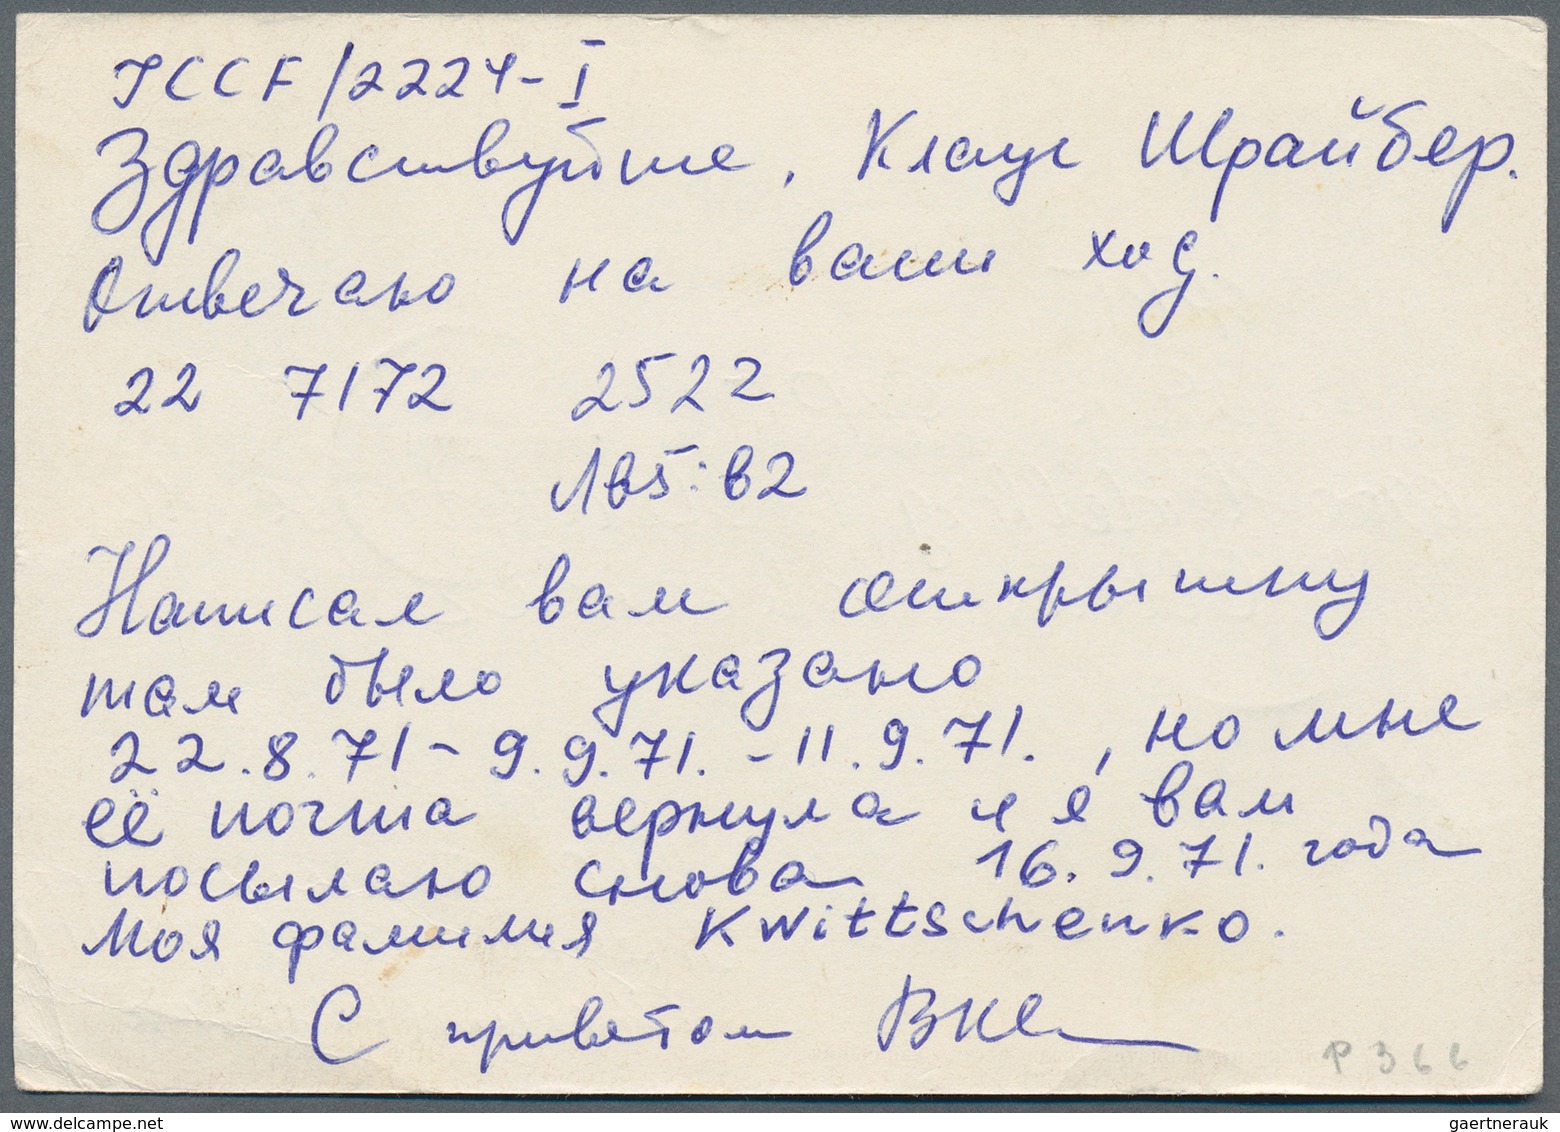 ICCF/2224-I
Здравствуйте, Клаус Шрайбер.
Отвечаю на ваш ход.
22 7172 2522
1в5:в2
Написал вам открытку
там было указано
22.8.71 - 9.9.71. - 11.9.71. , но мне
её почта вернула и я вам
посылаю снова 16.9.71. года
Моя фамилия Kwittschenko.
С приветом
P 366
gaertnerauk